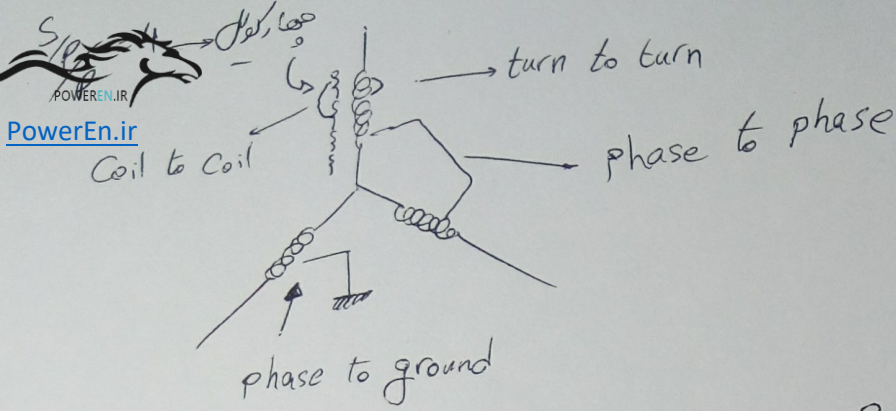 POWEREN.IR
PowerEn.ir
turn to turn
Coil to Coil
phase to phase
phase to ground